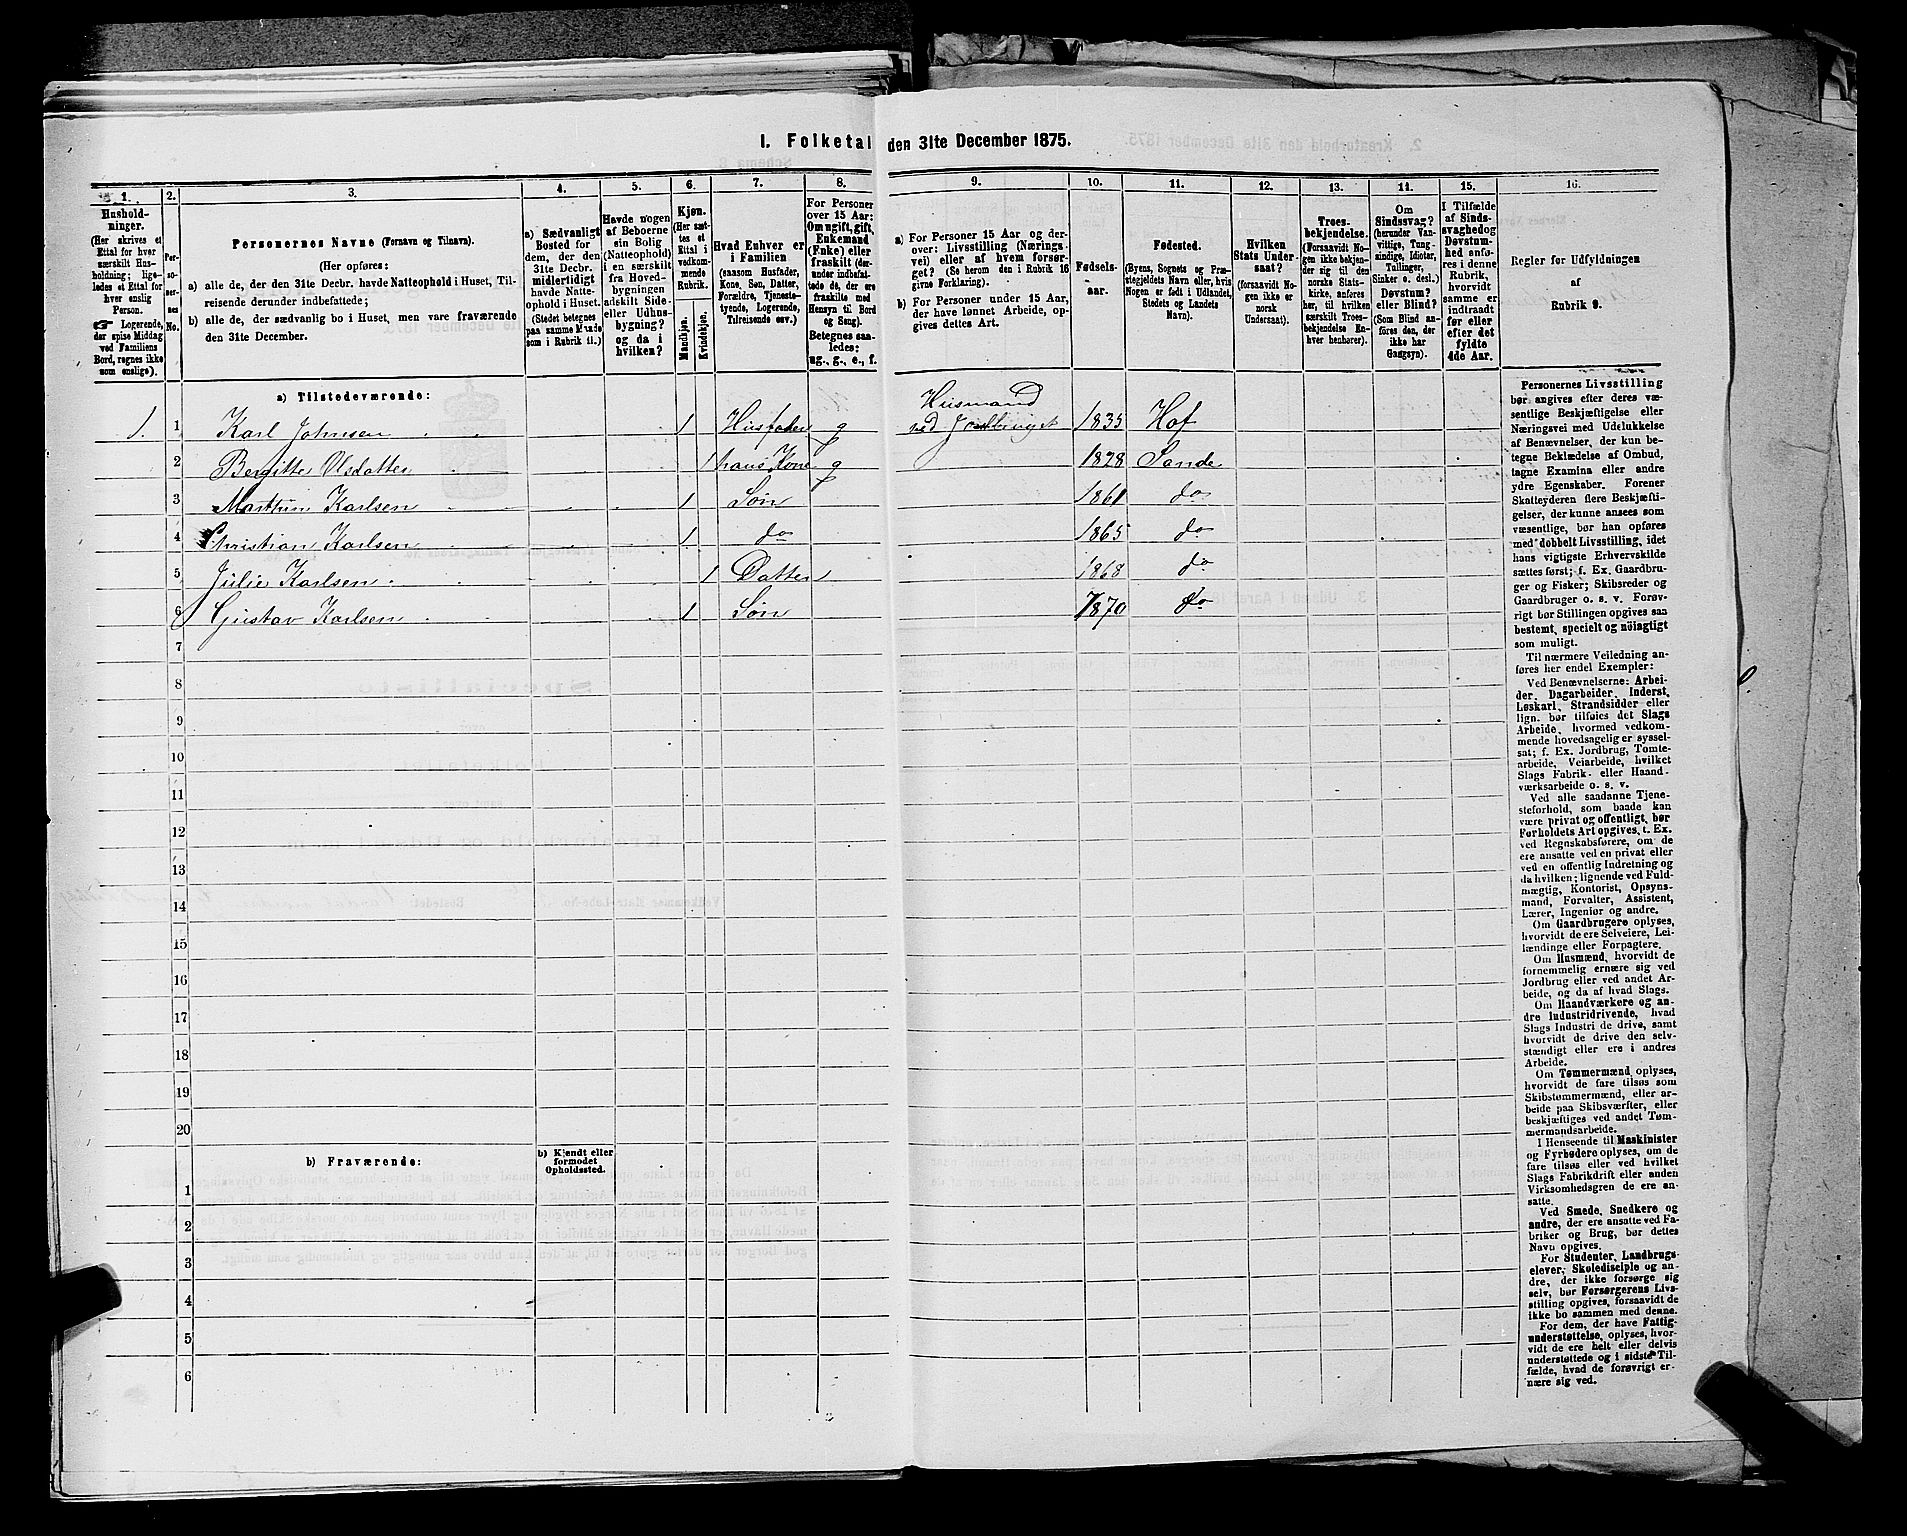 I. Folketal den 31te December 1875.
1.
Hushold-
ninger.
(Her skrives et
Ettal for hver
særskilt Hus-
holdning; lige-
ledes et Ettal for
hver enslig
Person.
☞ Logerende,
der spise Middag
ved Familiens
Bord, regnes ikke
som enslige).
2.
Per-
so-
ner-
nes
No.
3.
Personernes Navne (Fornavn og Tilnavn).
(Her opføres:
a) alle de, der den 31te Decbr. havde Natteophold i Huset, Til-
reisende derunder indbefattede;
b) alle de, der sædvanlig bo i Huset, men vare fraværende
den 31te December.
4.
a) Sædvanligt
Bosted for
dem, der den
31te Decbr.
midlertidigt
havde Natte-
ophold i Huset.
(Stedet betegnes
paa samme Maade
som i Rubrik 11.)
5.
Havde nogen
af Beboerne
sin Bolig
(Natteophold)
i en særskilt
fra Hoved-
bygningen
adskilt Side-
eller Udhus-
bygning?
og da i
hvilken?
6.
Kjøn.
(Her sæt-
tes et
Ettal i
vedkom-
mende
Rubrik.
Mandkjøn.
Kvindekjøn.
7.
Hvad Enhver er
i Familien
(saasom Husfader,
Kone, Søn, Datter,
Forældre, Tjeneste-
tyende, Logerende,
Tilreisende osv.)
8.
For Personer
over 15 Aar:
Om ugift, gift,
Enkemand
(Enke) eller
fraskilt (der-
under indbefat-
tede de, der ere
fraskilte med
Hensyn til Bord
og Seng).
Betegnes saa-
ledes:
ug., g., e., f.
9.
a) For Personer 15 Aar og der-
over: Livsstilling (Nærings-
vei) eller af hvem forsør-
get? (Se herom den i Rubrik 16
givne Forklaring).
b) For Personer under 15 Aar,
der have lønnet Arbeide, op-
gives dettes Art.
10.
Fødsels-
aar.
11.
Fødested.
(Byens, Sognets og Præ-
stegjeldets Navn eller, hvis
Nogen er født i Udlandet,
Stedets og Landets
Navn).
12.
Hvilken
Stats Under-
saat?
(forsaavidt No-
gen ikke er
norsk
Undersaat).
13.
Troes-
bekjendelse.
(Forsaavidt No-
gen ikke bekjen-
der sig til den
norske Stats-
kirke, anføres
her, til hvilken
særskilt Troes-
bekjendelse En-
hver henhører).
14.
Om
Sindssvag?
(herunder Van-
vittige, Tung-
sindige, Idioter,
Tullinger,
Sinker o. desl.)
Døvstum?
eller Blind?
(Som Blind an-
føres den, der
ikke har
Gangsyn).
15.
I Tilfælde
af Sinds-
svaghed og
Døvstum-
hed anfø-
res i denne
Rubrik,
hvorvidt
samme er
indtraadt
før eller
efter det
fyldte
4de Aar.
16.
Regler for Udfyldningen
af
Rubrik 9.
a) Tilstedeværende:
1. 1 Karl Johnsen 1 Husfader g Husmand
med Jordbruget 1835 Hof
2 Bergitte Olsdatter 1 hans Kone g 1828 Sande
3 Marthin Karlsen 1 Søn 1861 do
4 Christian Karlsen 1 do 1865 do
5 Julie Karlsen 1 Datter 1868 do
6 Gustav Karlsen 1 Søn 1870 do
7
8
9
10
11
12
13
14
15
16
17
18
19
20
b) Fraværende:
b) Kjendt eller
formodet
Opholdssted.
1
2
3
4
5
6
Personernes Livsstilling
bør angives efter deres væ-
sentlige Beskjæftigelse eller
Næringsvei med Udelukkelse
af Benævnelser, der kun be-
tegne Beklædelse af Ombud,
tagne Examina eller andre
ydre Egenskaber. Forener
Skatteyderen flere Beskjæfti-
gelser, der kunne ansees som
væsentlige, bør han opføres
med dobbelt Livsstilling, idet
hans vigtigste Erhvervskilde
sættes først; f. Ex. Gaardbru-
ger og Fisker; Skibsreder og
Gaardbruger o. s. v. Forøv-
rigt bør Stillingen opgives saa
bestemt, specielt og nöiagtigt
som muligt.
Til nærmere Veiledning an-
føres her endel Exempler:
Ved Benævnelserne: Arbei-
der, Dagarbeider, Inderst,
Løskarl, Strandsidder eller
lign. bør tilføies det Slags
Arbeide, hvormed vedkom-
mende hovedsagelig er syssel-
sat; f. Ex. Jordbrug, Tomte-
arbeide, Veiarbeide, hvilket
Slags Fabrik- eller Haand-
værksarbeide o. s. v.
Ved alle saadanne Tjene-
steforhold, som baade kan
være privat og offentligt, bør
Forholdets Art opgives, t. Ex.
ved Regnskabsførere, om de
ere ansatte ved en privat eller
ved en offentlig Indretning og
da hvilken; lignende ved Fuld-
mægtig, Kontorist, Opsyns-
mand, Forvalter, Assistent,
Lærer, Ingeniør og andre.
Om Gaardbrugere oplyses,
hvorvidt de ere Selveiere, Lei-
lændinge eller Forpagtere.
Om Husmænd, hvorvidt de
fornemmelig ernære sig ved
Jordbrug eller ved andet Ar-
beide, og da af hvad Slags.
Om Haandværkere og an-
dre Industridrivende, hvad
Slags Industri de drive, samt
hvorvidt de drive den selv-
stændigt eller ere i andres
Arbeide.
Om Tømmermænd oplyses,
hvorvidt de fare tilsøs som
Skibstømmermænd, eller ar-
beide paa Skibsværfter, eller
beskjæftiges ved andet Tøm-
mermandsarbeide.
I Henseende til Maskinister
og Fyrbødere oplyses, om de
fare tilsøs eller ved hvilket
Slags Fabrikdrift eller anden
Virksomhedsgren de ere an-
satte.
Ved Smede, Snedkere og
andre, der ere ansatte ved Fa-
briker og Brug, bør dettes
Navn opgives.
For Studenter, Landbrugs-
elever, Skoledisciple og an-
dre, der ikke forsørge sig
selv, bør Forsørgerens Livs-
stilling opgives, forsaavidt de
ikke bo sammen med denne.
For dem, der have Fattig-
understøttelse, oplyses, hvor-
vidt de ere helt eller delvis
understøttede og i sidste Til-
fælde, hvad de forøvrigt er-
nære sig ved.